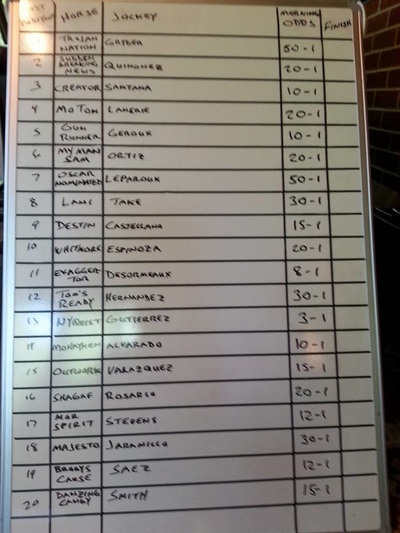 POST POSITION HORSE JOCKEY MORNING ODDS FINISH
1 TROJAN NATION GRYDER 50-1
2 SUDDEN BREAKING NEWS QUINONEZ 20-1
3 CREATOR SANTANA 10-1
4 MO TOM LANERIE 20-1
5 GUN RUNNER GEROUX 10-1
6 MY MAN SAM ORTIZ 20-1
7 OSCAR NOMINATED LEPAROUX 50-1
8 LANI TAKE 30-1
9 DESTIN CASTELLANO 15-1
10 WHITMORE ESPINOZA 20-1
11 EXAGGERTOR DESORMEAUX 8-1
12 TOM'S READY HERNANDEZ 30-1
13 NYQUIST GUTIERREZ 3-1
14 MOHAYMEN ALVARADO 10-1
15 OUTWORK VALAZQUEZ 15-1
16 SHAGAF ROSARIO 20-1
17 MOR SPIRIT STEVENS 12-1
18 MAJESTO JARAMILLO 30-1
19 BRODYS CAUSE SAEZ 12-1
20 DANZING CANDY SMITH 15-1